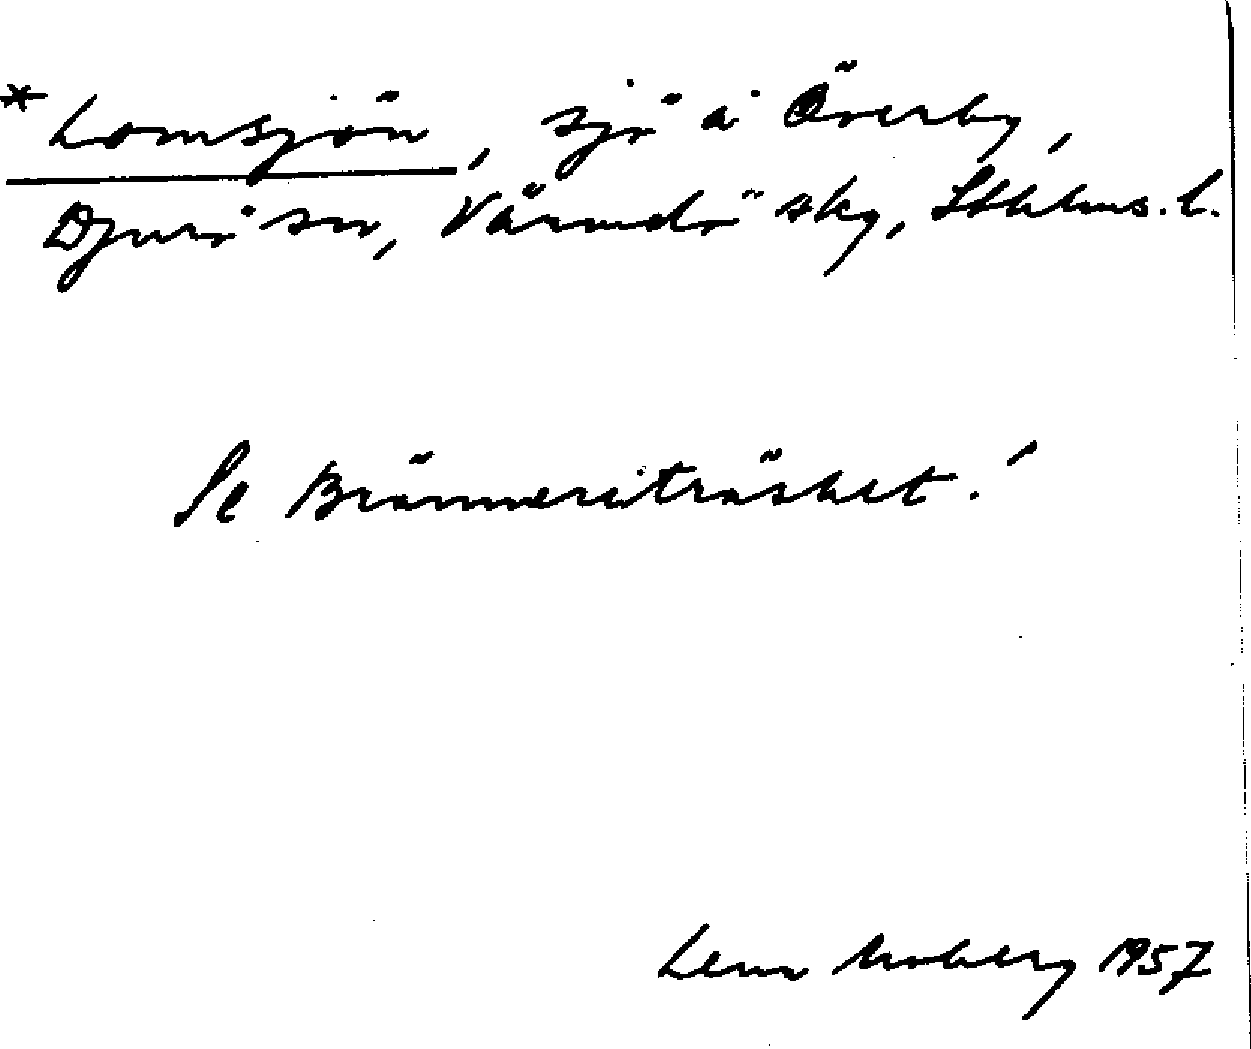 * Lomsjön, sjö å Överby,
Djurö sn, Värmdö sky, Sthlms. l.
Se Bränneriträsket!
Lena Moberg 1957